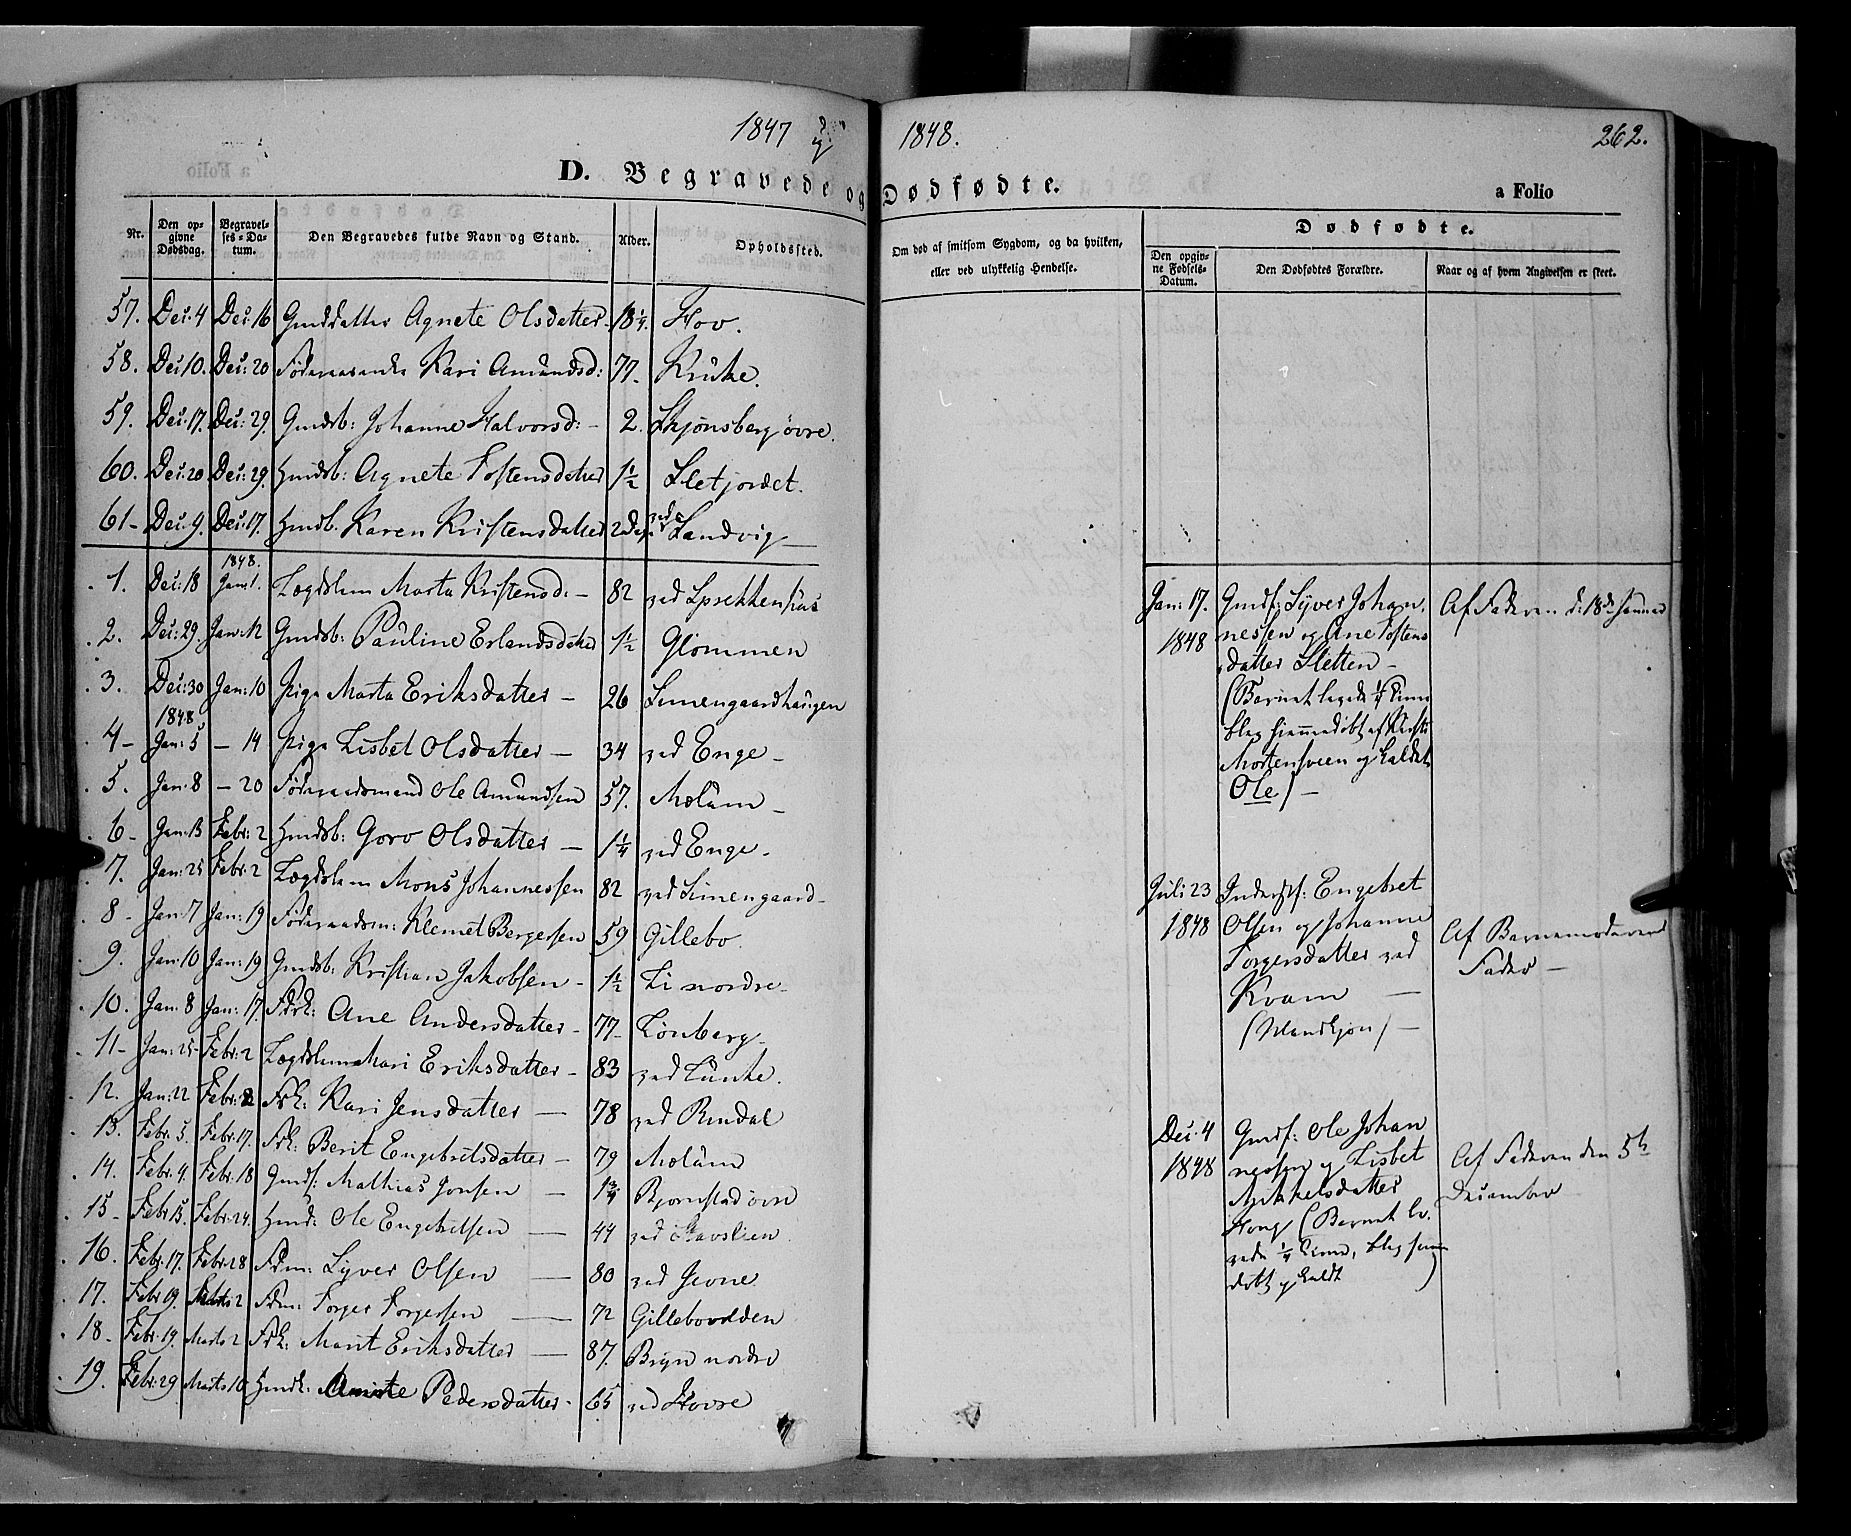 1847 og 1848.
262.
D. Begravede og Dødfødte.
a Folio
Nr.
Den opgivne Dødsdag.
Begravelses-Datum.
Den Begravedes fulde Navn og Stand.
Alder.
Opholdssted.
Om død af smitsom Sygdom, og da hvilken,
eller ved ulykkelig Hendelse.
Dødfødte.
Den opgivne Fødsels-Datum.
Den Dødfødtes Forældre.
Naar og af hvem Angivelsen er skeet.
57. Dec. 4 Dec: 16 Gmddatter Agnete Olsdatter 18 1/4. Hov.
58. Dec. 10. Dec: 20 Føderaadsenke Kari Amundsd: 77. Kruke.
59. Dec. 17. Dec: 29. Gmdsb: Johanne Halvorsd: – 2. Skjønsberg øvre.
60. Dec. 20 Dec: 29. Hmdsb: Agnete Tostensdatter 1 1/2 Sletjordet.
61– Dec. 9. Dec: 17. Hmdb. Karen Kristensdatter 2 Dage ved Sandvig –
1848.
1. Dec: 18 Jan: 1. Lægdslem Marta Kristensd: – 82 ved Sprekkenhus
2. Dec: 29. Jan: 12 Gmdsb: Pauline Erlandsdatter 1 1/2 Glommen
3. Dec: 30 Jan: 10 Pige Marta Eriksdatter – 26 Simengaardhaugen
1848
4– Jan: 5 – 14 Pige Lisbet Olsdatter – 34 ved Enge –
5. Jan: 8 – 20 Føderaadsmand Ole Amundsen 57. Molum –
6– Jan: 13 Febr: 2 Hmdsb: Goro Olsdatter – 1 1/4 ved Enge –
7. Jan: 25 Febr: 2 Lægdslem Mons Johannessen 82 ved Simengaard –
8– Jan: 7 Jan: 19 Føderaadsm: Klemet Bergersen 59 Gillebo
9. Jan: 10 Jan: 19 Gmdsb: Kristian Jakobsen – 1 1/2 Li nordre –
10. Jan: 8 Jan: 17. Fdrk: Ane Andersdatter – 77– Lønberg –
11– Jan: 25– Febr: 2 Lægdslem Mari Eriksdatter – 83 ved Lunke.
12. Jan: 22 Febr: 2 Frk: Kari Jensdatter – 78 ved Rindal
13. Febr: 5. Febr: 17. Frk: Berit Engebretsdatter – 79 Molum
14. Febr: 4. Febr: 18 Gmds: Mathias Jonsen – 1 3/4 Bjørnstad øvre
15– Febr: 15. Febr: 24. Hmd: Ole Engebretsen – 44 ved Stavslien
16. Febr: 17. Febr: 28 Fdm: Syver Olsen – 80 ved Jevne
17. Febr: 19. Marts 2 Fdm: Torger Torgersen – 72 Gillebovolden
18– Febr: 19. Marts 2 Frk: Marit Eriksdatter – 87. Bryn nordre
19. Febr: 29 Marts 10 Hmdk: Anne Pedersdatter – 65 ved Hovre
Jan: 17. 1848
Gmdf: Syver Johan
nessen og Ane Tostens
datter Sletten –
(Barnet levede 1/4 Time
blev hiemmedøbt af
Mortensveen og kaldet
Ole) –
Af Faderen d: 18de Januar
Juli 23 1848
Inderstf: Engebret
Olsen og Johanne
Torgersdatter ved
Kvam –
(Mandkjøn) –
Af Barnemoderens
Fader –
Dec. 4 1848
Gmdf: Ole Johan
nessen og Lisbet
Mikkelsdatter
Haug (Barnet le
vede 1/4 Time, blev hjem
døbt og kaldt )
Af Faderen den 5te
December